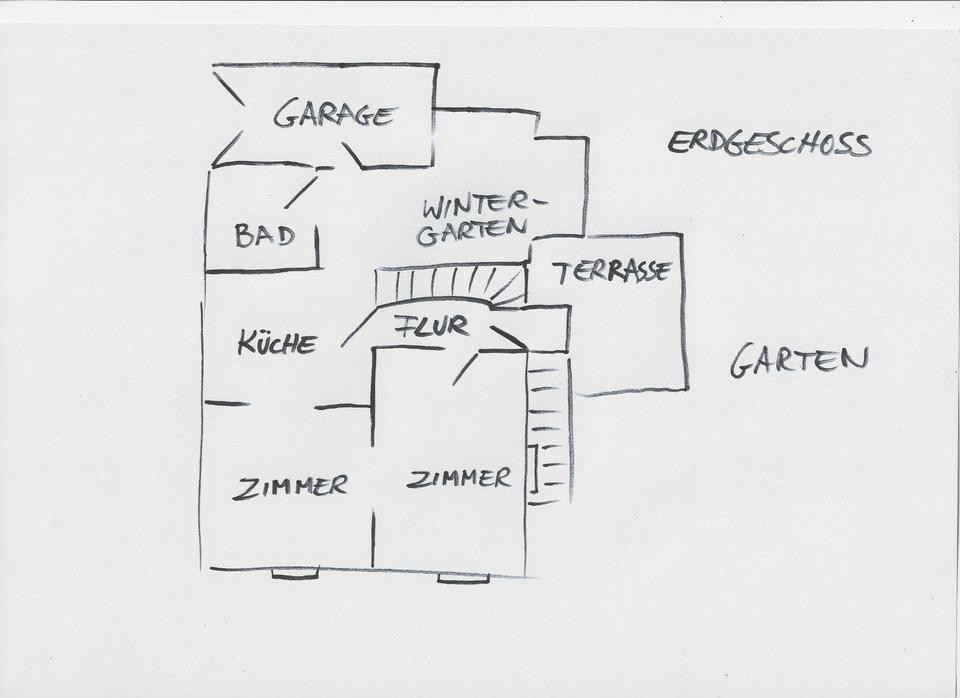 GARAGE
ERDGESCHOSS
WINTER-
GARTEN
BAD
TERRASSE
FLUR
KÜCHE
GARTEN
ZIMMER
ZIMMER